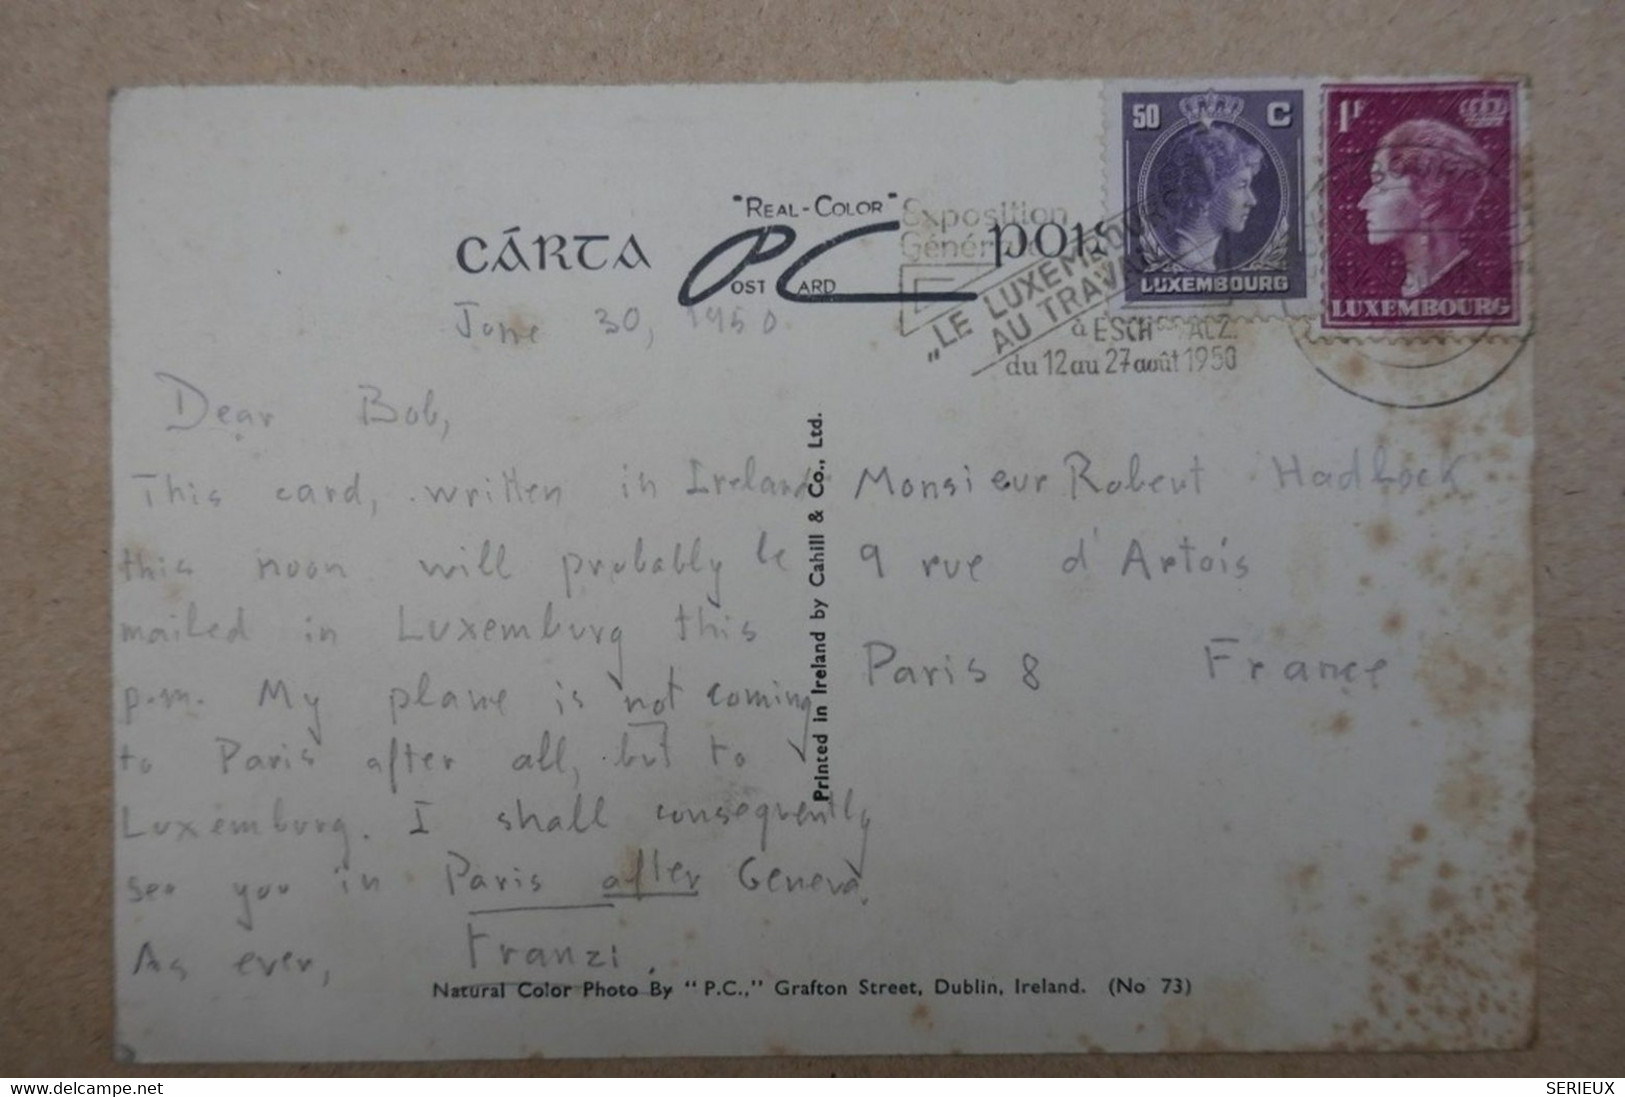 "REAL-COLOR"
CÁRTA
POST CARD
Exposition
"LE LUXEMBOURG
AU TRAVAIL"
à ESCH s/ ALZ.
du 12 au 27 août 1950
50 C
LUXEMBOURG
1F
LUXEMBOURG
June 30, 1950
Dear Bob,
This card, written in Ireland
this noon will probably be
mailed in Luxemburg this
p.m. My plane is not coming
to Paris after all, but to
Luxemburg. I shall consequently
see you in Paris after Geneva.
As ever, Franzi.
Printed in Ireland by Cahill & Co., Ltd.
Monsieur Robert Hadlock
9 rue d'Artois
Paris 8 France
Natural Color Photo By "P.C.," Grafton Street, Dublin, Ireland. (No 73)
delcampe.net
SERIEUX